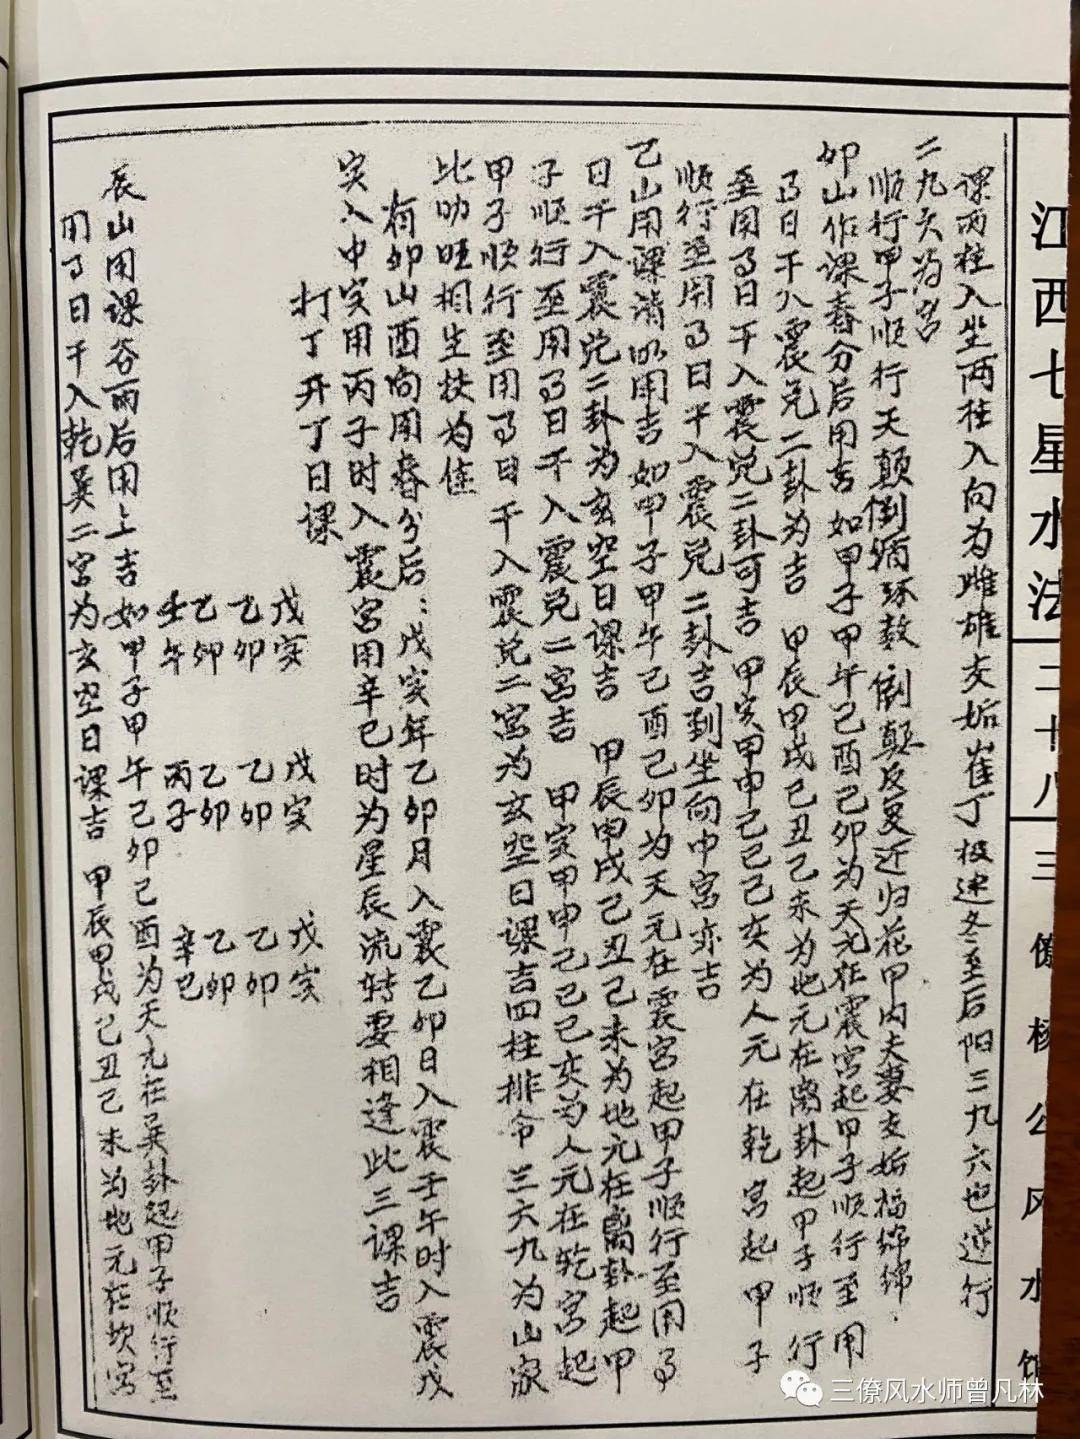 江西七星水法
二十八
三僚杨公风水馆
课两柱入坐两柱入向为雌雄交姤崔丁极速冬至后阳三九六也逆行
二九六为宫
顺行甲子顺行天颠倒循环数 倒颠反复迁归花甲内夫妻交姤福绵绵
卯山作课春分后用吉 如甲子甲午己酉己卯为天元在震宫起甲子顺行至用
日干入震兑二卦为吉 甲辰甲戌己丑己未为地元在离卦起甲子顺行
至用 日干入震兑二卦可吉 甲寅甲申己巳己亥为人元在乾宫起甲子
顺行至用 日干入震兑二卦吉到坐向中宫亦吉
乙山用课清明用吉 如甲子甲午己酉己卯为天元在震宫起甲子顺行至用
日干入震兑二卦为玄空日课吉 甲辰甲戌己丑己未为地元在离卦起甲
子顺行至用 日干入震兑二宫吉 甲寅甲申己巳己亥为人元在乾宫起
甲子顺行至用 日干入震兑二宫为玄空日课吉四柱排令三六九为山家
比助旺相生扶为佳
有卯山酉向用春分后：戊寅年乙卯月入震乙卯日入震壬午时入震戊
寅入中寅用丙子时入震宫用辛巳时为星辰流转要相逢此三课吉
打丁开丁日课
戊寅 戊寅 戊寅
乙卯 乙卯 乙卯
乙卯 乙卯 乙卯
壬午 丙子 辛巳
辰山用课谷雨后用上吉如甲子甲午己卯己酉为天元在巽卦起甲子顺行至
用 日干入乾巽二宫为玄空日课吉 甲辰甲戌己丑己未为地元在坎宫
三僚风水师曾凡林